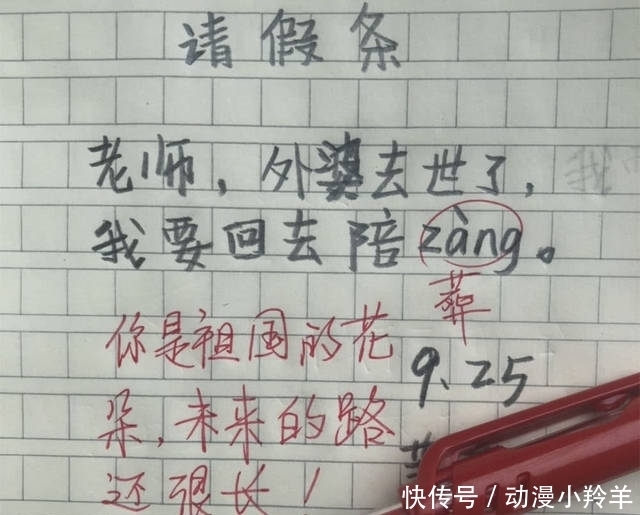 请假条
老师，外婆去世了，
我要回去陪zàng。
葬
你是祖国的花
9.25
朵，未来的路
还很长！
快传号/动漫小羚羊